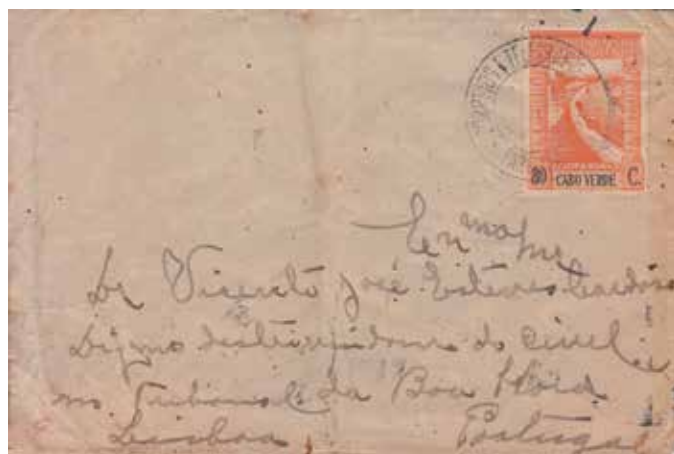 80 CABO VERDE C.
Exmo
Dr Vicente José Esteves Cardoso
Digmo do Civel
no Tribunal da Boa Hora
Lisboa Portugal